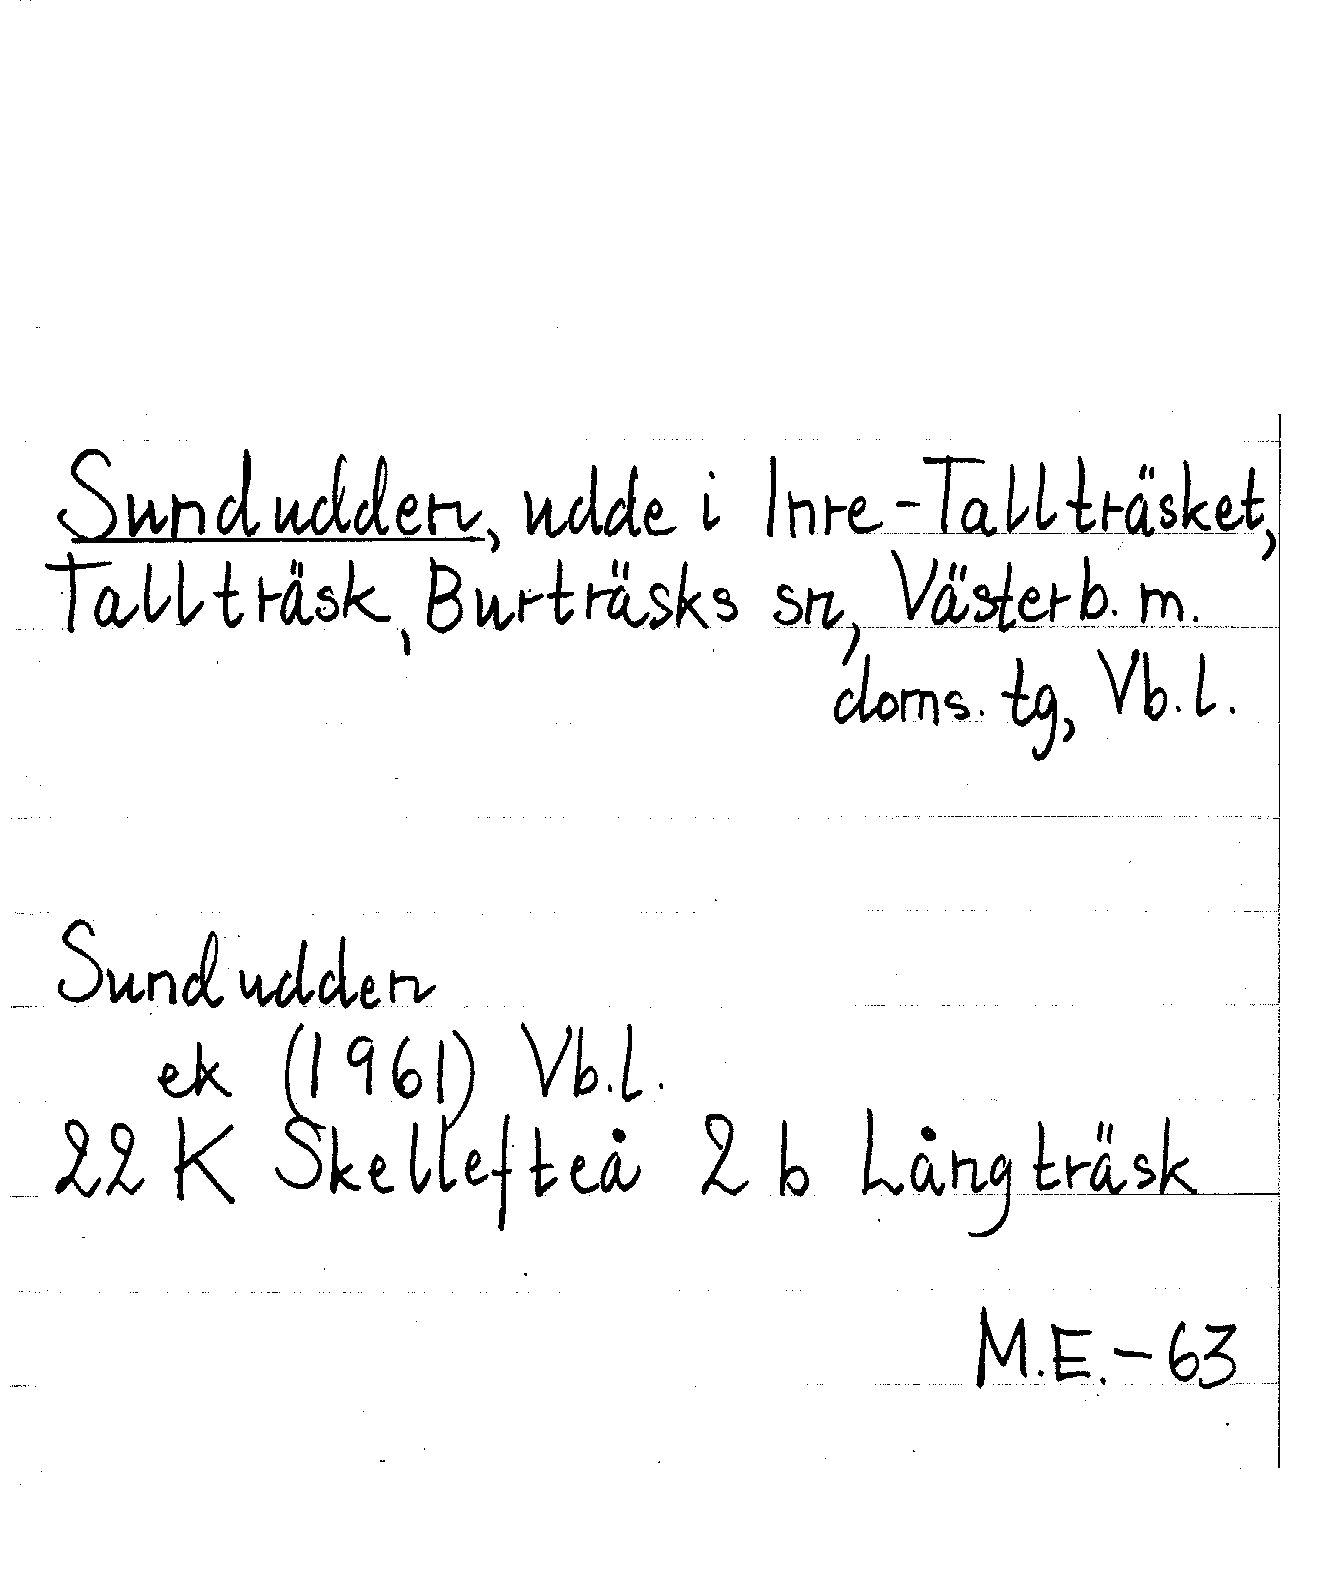 Sundudden, udde i Inre-Tallträsket,
Tallträsk, Burträsks sn, Västerb. m.
doms. tg, Vb. l.
Sundudden
ek (1961) Vb. l.
22 K Skellefteå 2 b Långträsk
M.E. - 63